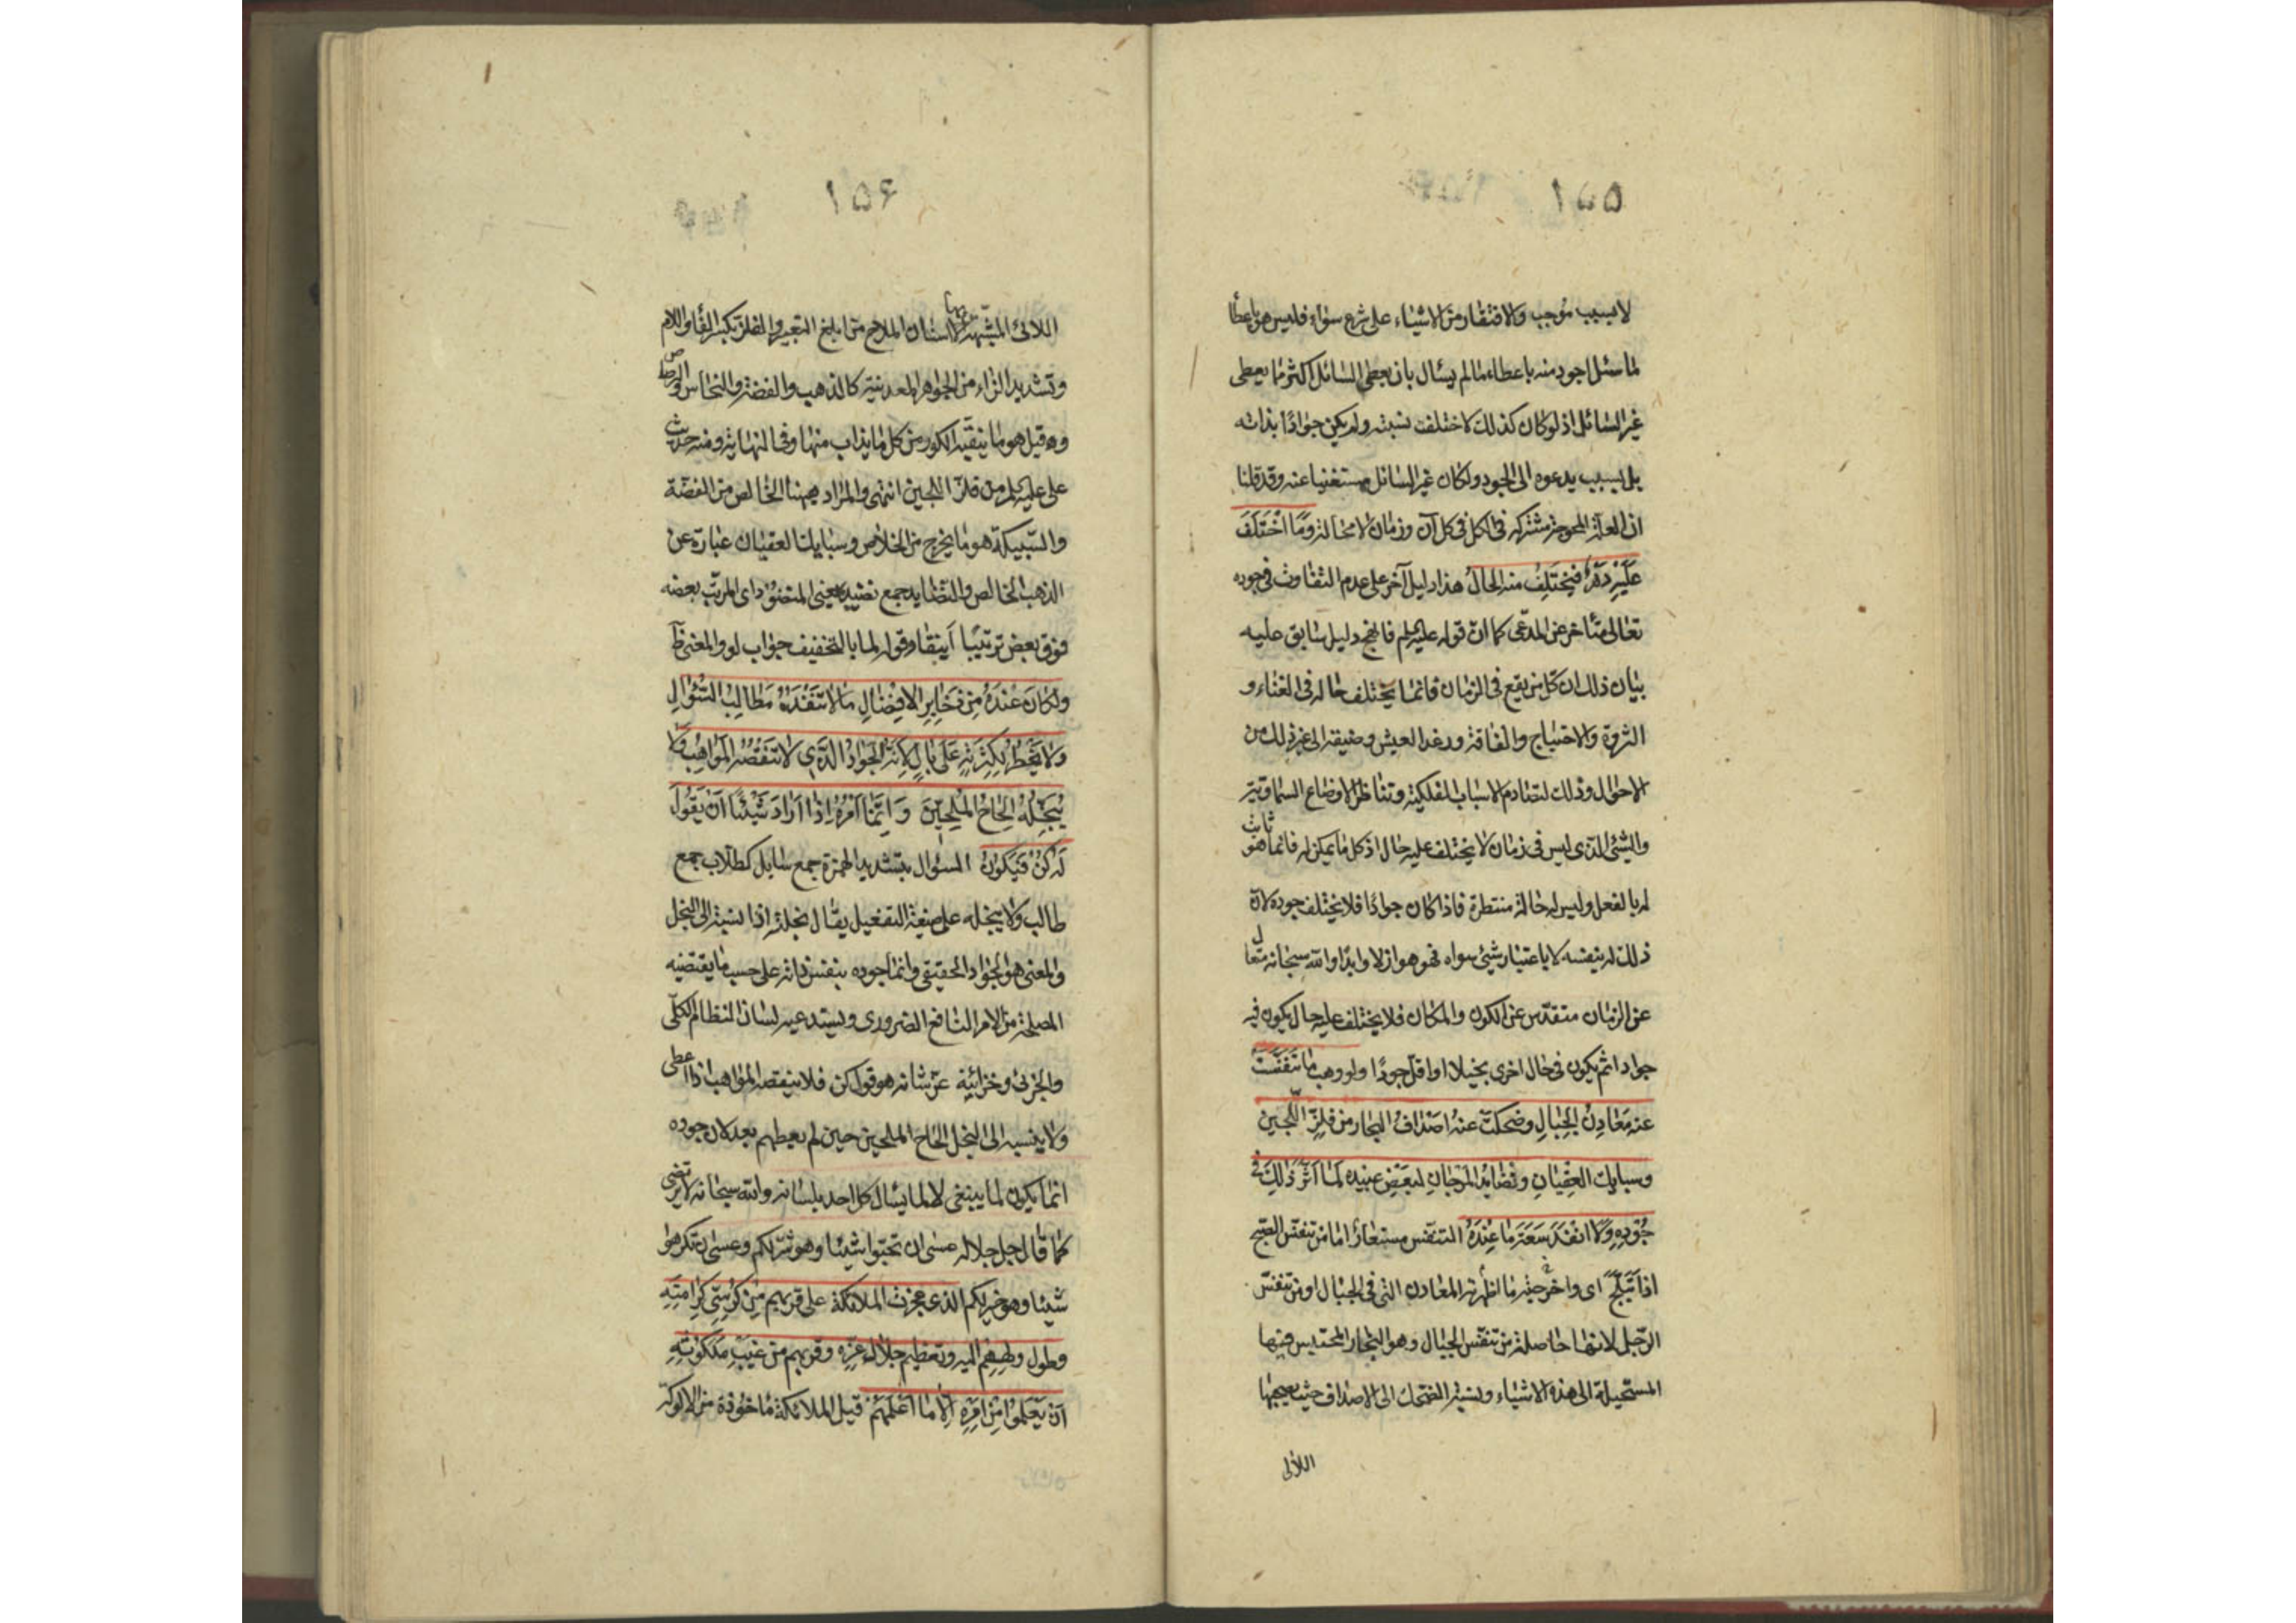 ١٥٥
لا بسبب موجب والافتقار من الاشياء على شرع سواء فليس هو باعطا
لما سئل اجود منه باعطاء ما لم يسأل بان يعطى السائل اكثر مما يعطى
غير السائل اذ لو كان كذلك لاختلفت نسبته ولم يكن جوادًا بذاته
بل بسبب يدعوه الى الجود ولكان غير السائل مستغنيا عنه وقد قلنا
ان العلة المحوجة مشتركة فى الكل فى كل آن وزمان لا محالة وَمَا اخْتَلَفَ
عَلَيْهِ دَهْرٌ فَيَخْتَلِفُ منه الحالُ هذا دليل آخر على عدم التفاوت فى جوده
تعالى متأخر عن المدعى كما ان قوله عليه السلم دليل سابق عليه
بيان ذلك ان كل من يقع فى الزمان فانما يختلف حاله فى الغناء و
الثروة والاحتياج والفاقة ورغد العيش وضيقه الى غير ذلك من
الاحوال وذلك لتصادم الاسباب الفلكية وتناظر الاوضاع السماوية
والشئ الذى ليس فى زمان لا يختلف عليه حال اذ كل ما يمكن له فانما هو ثابت
له بالفعل وليس له حالة منتظرة فاذا كان جوادًا فلا يختلف جوده لان
ذلك له بنفسه لا باعتبار شئ سواه فهو هو ازلا وابدًا والله سبحانه متعال
عن الزمان متقدس عن الكون والمكان فلا يختلف عليه حال يكون فيه
جوادا ثم يكون فى حال اخرى بخيلا او اقل جودًا ولو وهب ما تَنَفَّسَتْ
عنه مَعَادِنُ الجِبَالِ وضحكت عنهُ اصْدافُ البحار من فلزّ اللّجين
وسبايك العِقْيَانِ ونَضَايد المَرْجَانِ لبَعْضِ عبيده لمَا اَثَّرَ ذَلِكَ فى
جُودِهِ وَلَا اَنْفَدَ سَعَةَ مَا عِنْدَهُ التنفس مستعار اما من تنفس الصبح
اذا تَبَلَّجَ اى ما اظهرته المعادن التى فى الجبال او من تنفس
الرّجل لانها حاصلة من تنفس الجبال وهو البخار المحتبس فيها
المستحيلة الى هذه الاشياء ونسبة الضحك الى الاصداف حيث
اللآلى
١٥۶
اللآلئ المشبهة بالاسنان الملاح من ابلغ التعبير والفلز بكسر الفاء واللام
وتشديد الزاء من الجواهر المعدنية كالذهب والفضة والنحاس والرصاص
وقيل هو ما ينقيه الكور من كل ما يذاب منها وفى النهاية ومنه حديث
على عليه السلم من فلزّ اللجين انتهى والمراد ههنا الخالص من الفضة
والسّبيكة هو ما يخرج من الخلاص وسبايك العقيان عبارة عن
الذهب الخالص والنضايد جمع نضيد بمعنى المنضود اى المرتب بعضه
فوق بعض ترتيبًا وقوله لما بالتخفيف جواب لو والمعنى ظ
ولكانَ عِنْدَهُ مِن ذَخَايِرِ الافْضَالِ مَا لاَ تَنْفَدُهُ مَطَالِبُ السُّؤالِ
وَلا يَخْطُرُ لِكَثْرَتِهِ عَلَى بَالٍ لِاَنّهُ الجَوَادُ الَّذِي لا تَنْقُصُهُ المَوَاهِبُ وَلا
يُبَخِّلُهُ اِلحَاحُ المُلِحِّينَ وَ اِنَّمَا اَمْرُهُ اِذَا اَرَادَ شَيْئًا اَنْ يَقُولَ
لَهُ كُنْ فَيَكُونُ السؤال بتشديد الهمزة جمع سايل كطلاب جمع
طالب ولا يبخله على صيغة التفعيل يقال بخلته اذا نسبته الى البخل
والمعنى هو الجواد الحقيقى وانما جوده بنفس ذاته على حسب ما يقتضيه
المصلحة من الامر النافع الضرورى ويستدعيه لسان النظام الكلّى
والجزئى وخزائنه عز شانه هو قول كن فلا ينقصه المواهب اذا اعطى
ولا ينسبه الى البخل الحاح الملحين حين لم يعطهم بعد لان جوده
انما يكون لما ينبغى لا لما يسأل كل احد بلسانه والله سبحانه
كما قال جل جلاله عسى ان تحبوا شيئا وهو شرّ لكم وعسى ان تكرهوا
شيئا وهو خير لكم الذى عجزت الملائكة على قربهم مِنْ كُرْسِيِّ كَرَامَتِهِ
وطول ولههم اليه وتعظيم جلال عزه وقربهم من غَيْبِ مَلَكُوتِهِ
اَنْ يَعْلَمُوا مِنْ اَمْرِهِ اِلّا مَا اَعْلَمَهُمْ قيل الملائكة ماخوذة من الالوكة